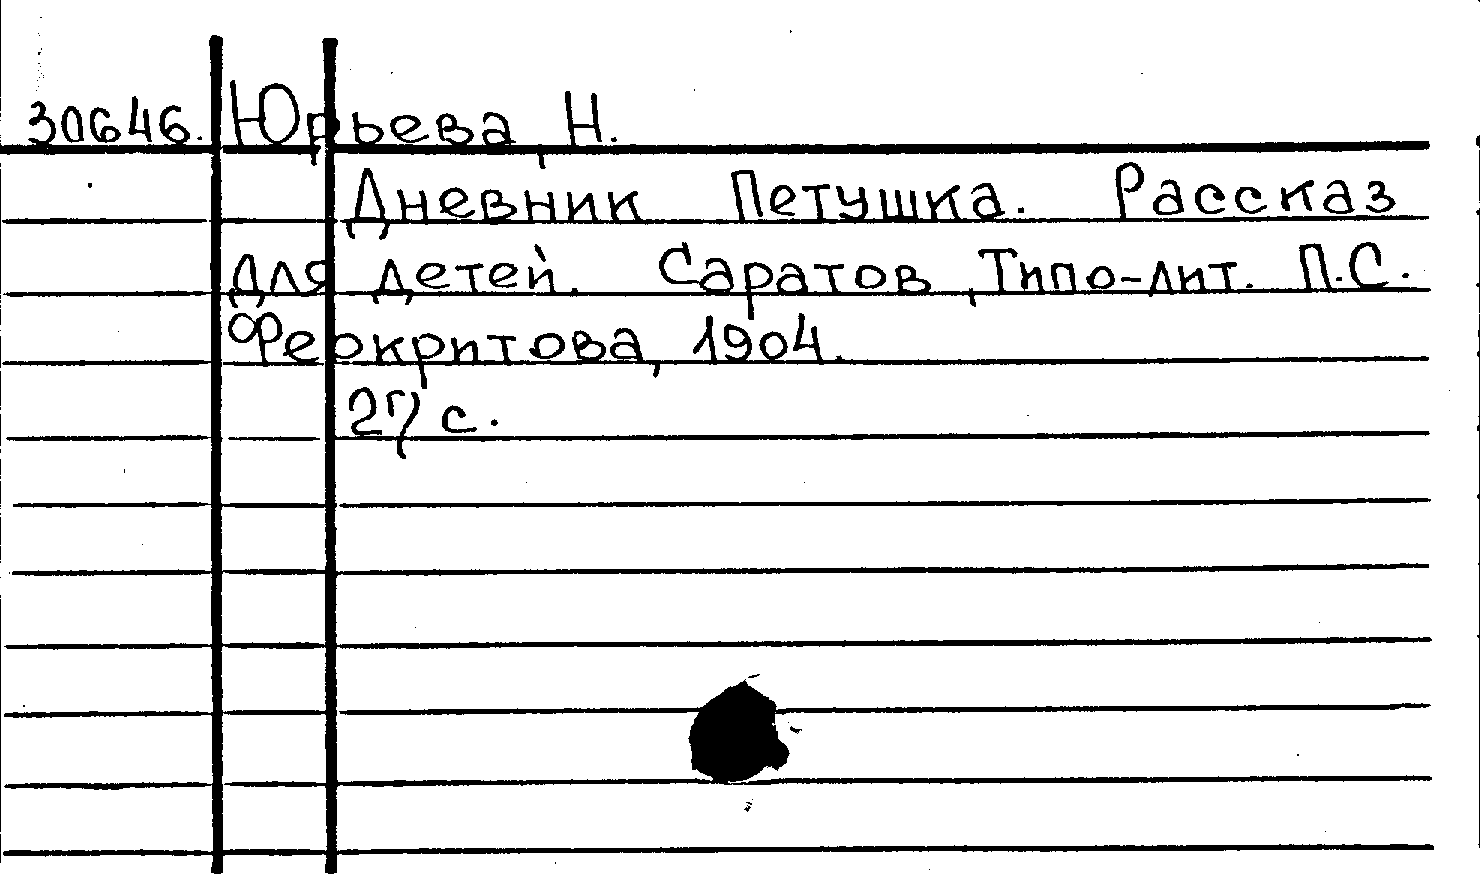 30646. Юрьева, Н.
Дневник Петушка. Рассказ
для детей. Саратов, Типо-лит. П.С.
Феокритова, 1904.
27 с.